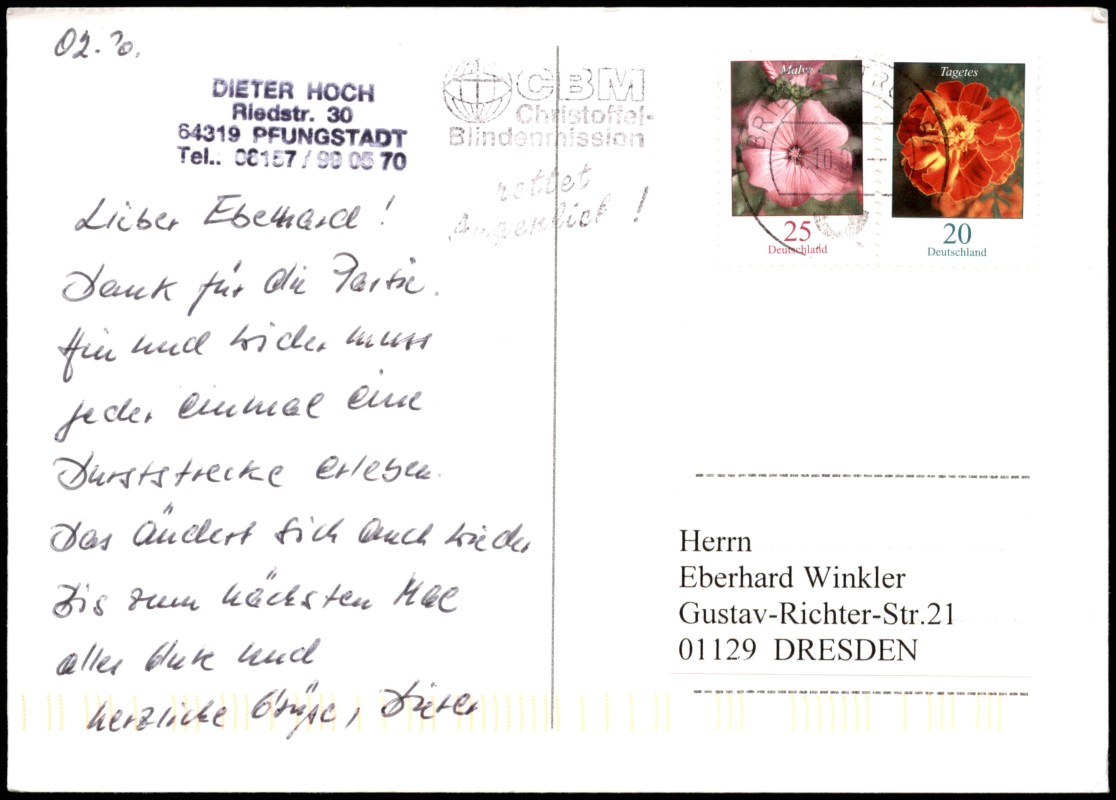 02.
DIETER HOCH
Riedstr. 30
64319 PFUNGSTADT
Tel.: 06157 / 99 05 70
CBM
Christoffel-
Blindenmission
rettet
Augenblick!
Malve
25
Deutschland
Tagetes
20
Deutschland
BRIE
Lieber Eberhard!
Dank für die Partie.
Hin und wider muss
jeder einmal eine
Durststrecke erleben.
Das ändert sich auch wieder
Bis zum nächsten Mal
alles Gute und
herzliche Grüße, Dieter
Herrn
Eberhard Winkler
Gustav-Richter-Str.21
01129 DRESDEN